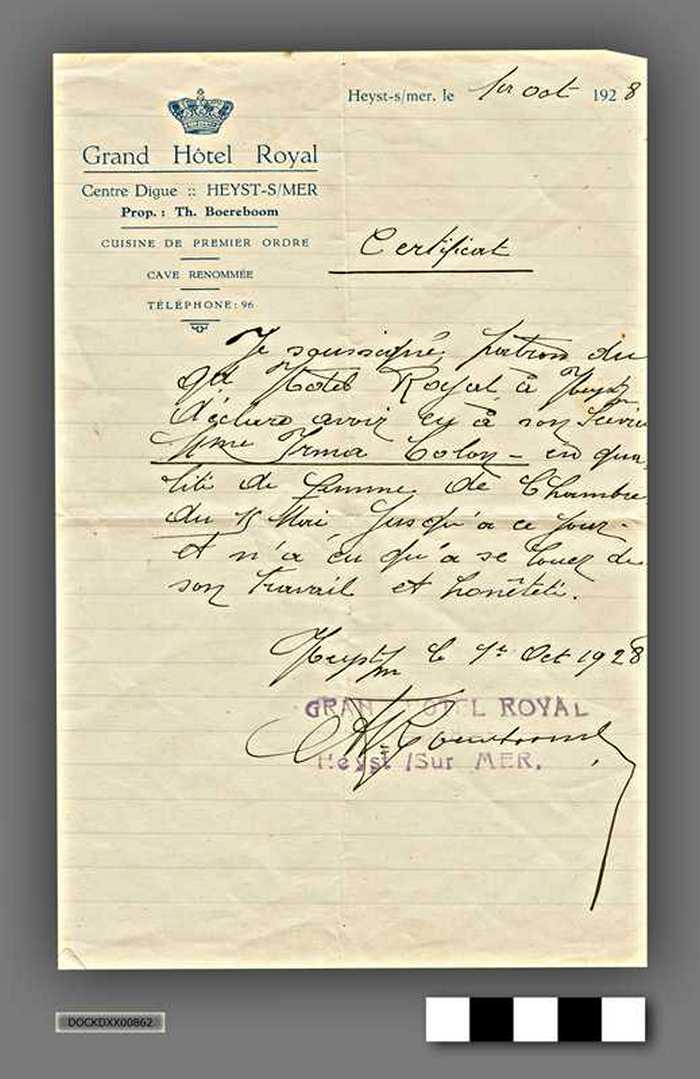 Heyst-s/mer, le 1er oct 1928
Grand Hôtel Royal
Centre Digue :: HEYST-S/MER
Prop. : Th. Boereboom
CUISINE DE PREMIER ORDRE
CAVE RENOMMÉE
TÉLÉPHONE : 96
Certificat
Je soussigné, patron du
gd Hotel Royal à Heyst s/m
déclare avoir eu à son Servic
Mme Irma Colon - en qua
lité de femme de Chambre
du 15 Mai jusqu'a ce jour -
et n'a eu qu'a se louer de
son travail et honêteté.
Heyst s/m le 1r Oct 1928
GRAND HOTEL ROYAL
Th. Boereboom
Heyst /Sur MER.
DOCKDXX00862